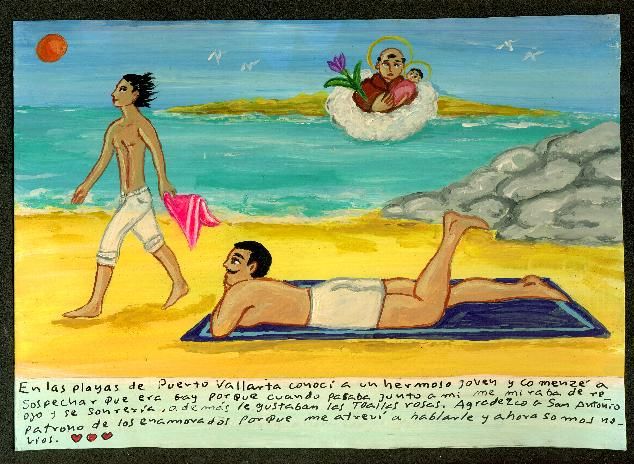 En las playas de Puerto Vallarta conocí a un hermoso joven y comenzé a
sospechar que era gay porque cuando pasaba junto a mí me miraba de re_
ojo y se sonreria, además le gustaban las toallas rosas. Agradezco a San Antonio
patrono de los enamorados porque me atreví a hablarle y ahora somos no_
vios.